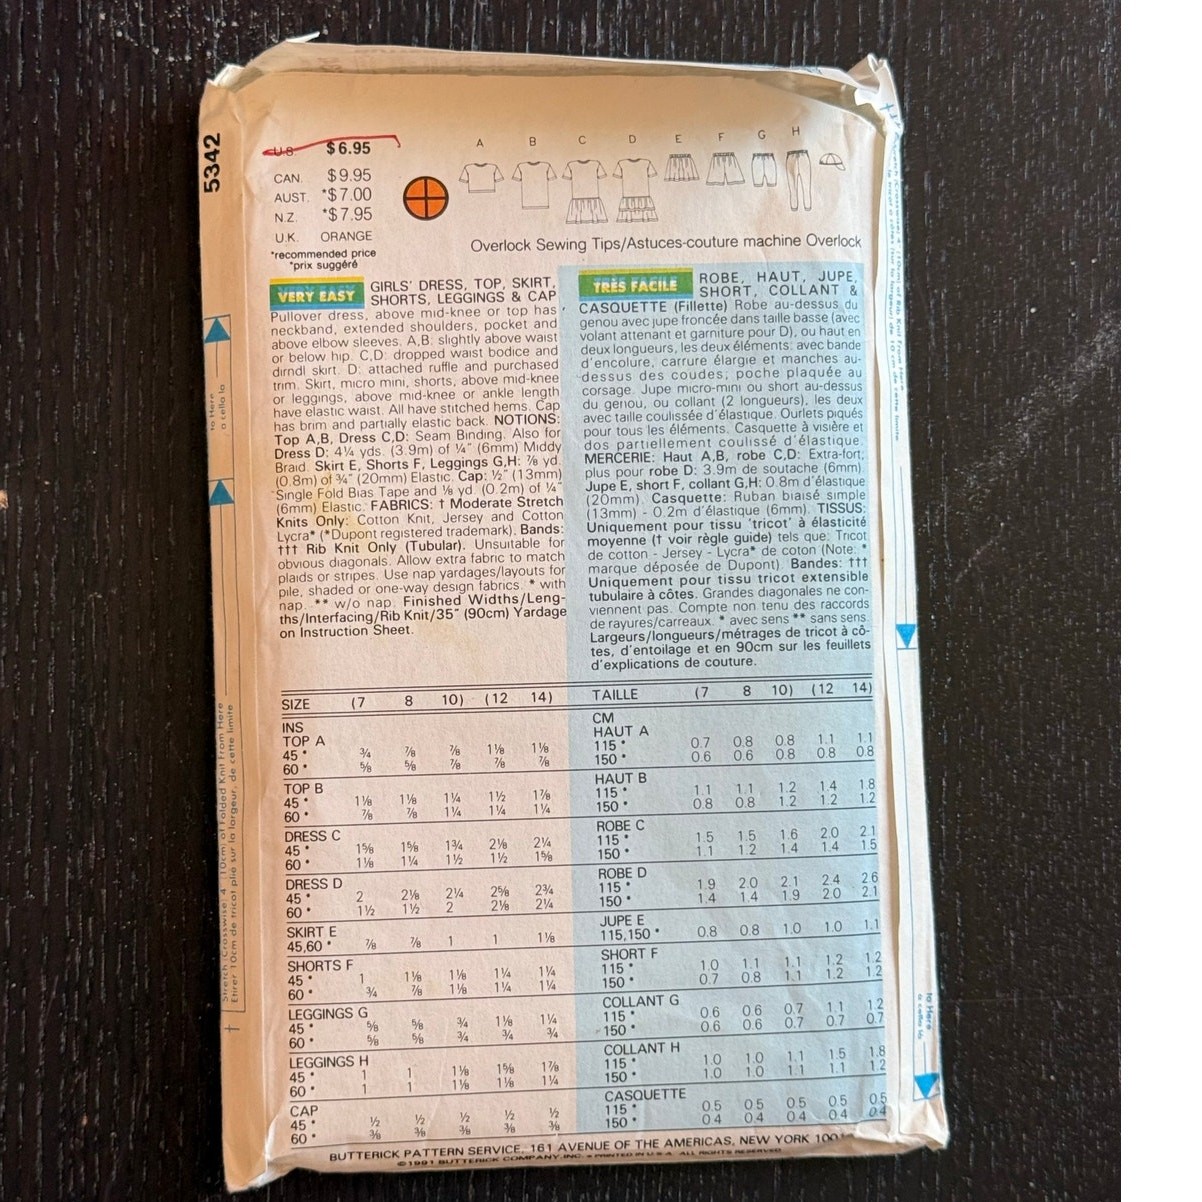 5342
U.S. $6.95
CAN. $9.95
AUST. *$7.00
N.Z. *$7.95
U.K. ORANGE
*recommended price
*prix suggéré
A B C D E F G H
Overlock Sewing Tips/Astuces-couture machine Overlock
VERY EASY GIRLS' DRESS, TOP, SKIRT,
SHORTS, LEGGINGS & CAP
Pullover dress, above mid-knee or top has
neckband, extended shoulders, pocket and
above elbow sleeves. A,B: slightly above waist
or below hip. C,D: dropped waist bodice and
dirndl skirt. D: attached ruffle and purchased
trim. Skirt, micro mini, shorts, above mid-knee
or leggings, above mid-knee or ankle length
have elastic waist. All have stitched hems. Cap
has brim and partially elastic back. NOTIONS:
Top A,B, Dress C,D: Seam Binding. Also for
Dress D: 4¼ yds. (3.9m) of ¼" (6mm) Middy
Braid. Skirt E, Shorts F, Leggings G,H: ⅞ yd.
(0.8m) of ¾" (20mm) Elastic. Cap: ½" (13mm)
Single Fold Bias Tape and ⅛ yd. (0.2m) of ¼"
(6mm) Elastic. FABRICS: † Moderate Stretch
Knits Only: Cotton Knit, Jersey and Cotton
Lycra* (*Dupont registered trademark). Bands:
††† Rib Knit Only (Tubular). Unsuitable for
obvious diagonals. Allow extra fabric to match
plaids or stripes. Use nap yardages/layouts for
pile, shaded or one-way design fabrics. * with
nap. ** w/o nap. Finished Widths/Leng-
ths/Interfacing/Rib Knit/35" (90cm) Yardage
on Instruction Sheet.
TRÈS FACILE ROBE, HAUT, JUPE,
SHORT, COLLANT &
CASQUETTE (Fillette) Robe au-dessus du
genou avec jupe froncée dans taille basse (avec
volant attenant et garniture pour D), ou haut en
deux longueurs, les deux éléments: avec bande
d'encolure, carrure élargie et manches au-
dessus des coudes; poche plaquée au
corsage. Jupe micro-mini ou short au-dessus
du genou, ou collant (2 longueurs), les deux
avec taille coulissée d'élastique. Ourlets piqués
pour tous les éléments. Casquette à visière et
dos partiellement coulissé d'élastique.
MERCERIE: Haut A,B, robe C,D: Extra-fort;
plus pour robe D: 3.9m de soutache (6mm).
Jupe E, short F, collant G,H: 0.8m d'élastique
(20mm). Casquette: Ruban biaisé simple
(13mm) - 0.2m d'élastique (6mm). TISSUS:
Uniquement pour tissu 'tricot' à élasticité
moyenne († voir règle guide) tels que: Tricot
de cotton - Jersey - Lycra* de coton (Note: *
marque déposée de Dupont). Bandes: †††
Uniquement pour tissu tricot extensible
tubulaire à côtes. Grandes diagonales ne con-
viennent pas. Compte non tenu des raccords
de rayures/carreaux. * avec sens ** sans sens.
Largeurs/longueurs/métrages de tricot à cô-
tes, d'entoilage et en 90cm sur les feuillets
d'explications de couture.
SIZE (7 8 10) (12 14)
INS
TOP A
45 * ¾ ⅞ ⅞ 1⅛ 1⅛
60 * ⅝ ⅝ ⅞ ⅞ ⅞
TOP B
45 * 1⅛ 1⅛ 1¼ 1½ 1⅞
60 * ⅞ ⅞ 1¼ 1¼ 1¼
DRESS C
45 * 1⅝ 1⅝ 1¾ 2⅛ 2¼
60 * 1⅛ 1¼ 1½ 1½ 1⅝
DRESS D
45 * 2 2⅛ 2¼ 2⅝ 2¾
60 * 1½ 1½ 2 2⅛ 2¼
SKIRT E
45,60 * ⅞ ⅞ 1 1 1⅛
SHORTS F
45 * 1 1⅛ 1⅛ 1¼ 1¼
60 * ¾ ⅞ 1⅛ 1¼ 1¼
LEGGINGS G
45 * ⅝ ⅝ ¾ 1⅛ 1¼
60 * ⅝ ⅝ ¾ ¾ ¾
LEGGINGS H
45 * 1 1 1⅛ 1⅝ 1⅞
60 * 1 1 1⅛ 1⅛ 1¼
CAP
45 * ½ ½ ½ ½ ½
60 * ⅜ ⅜ ⅜ ⅜ ⅜
TAILLE (7 8 10) (12 14)
CM
HAUT A
115 * 0.7 0.8 0.8 1.1 1.1
150 * 0.6 0.6 0.8 0.8 0.8
HAUT B
115 * 1.1 1.1 1.2 1.4 1.8
150 * 0.8 0.8 1.2 1.2 1.2
ROBE C
115 * 1.5 1.5 1.6 2.0 2.1
150 * 1.1 1.2 1.4 1.4 1.5
ROBE D
115 * 1.9 2.0 2.1 2.4 2.6
150 * 1.4 1.4 1.9 2.0 2.1
JUPE E
115,150 * 0.8 0.8 1.0 1.0 1.1
SHORT F
115 * 1.0 1.1 1.1 1.2 1.2
150 * 0.7 0.8 1.1 1.2 1.2
COLLANT G
115 * 0.6 0.6 0.7 1.1 1.2
150 * 0.6 0.6 0.7 0.7 0.7
COLLANT H
115 * 1.0 1.0 1.1 1.5 1.8
150 * 1.0 1.0 1.1 1.1 1.2
CASQUETTE
115 * 0.5 0.5 0.5 0.5 0.5
150 * 0.4 0.4 0.4 0.4 0.4
BUTTERICK PATTERN SERVICE, 161 AVENUE OF THE AMERICAS, NEW YORK
©1991 BUTTERICK COMPANY, INC. • PRINTED IN U.S.A. ALL RIGHTS RESERVED
to Here
a cella lo
† Stretch (Crosswise) 4" (10cm) of Folded Knit From Here
Étirer 10cm de tricot plié sur la largeur, de cette limite
to Here